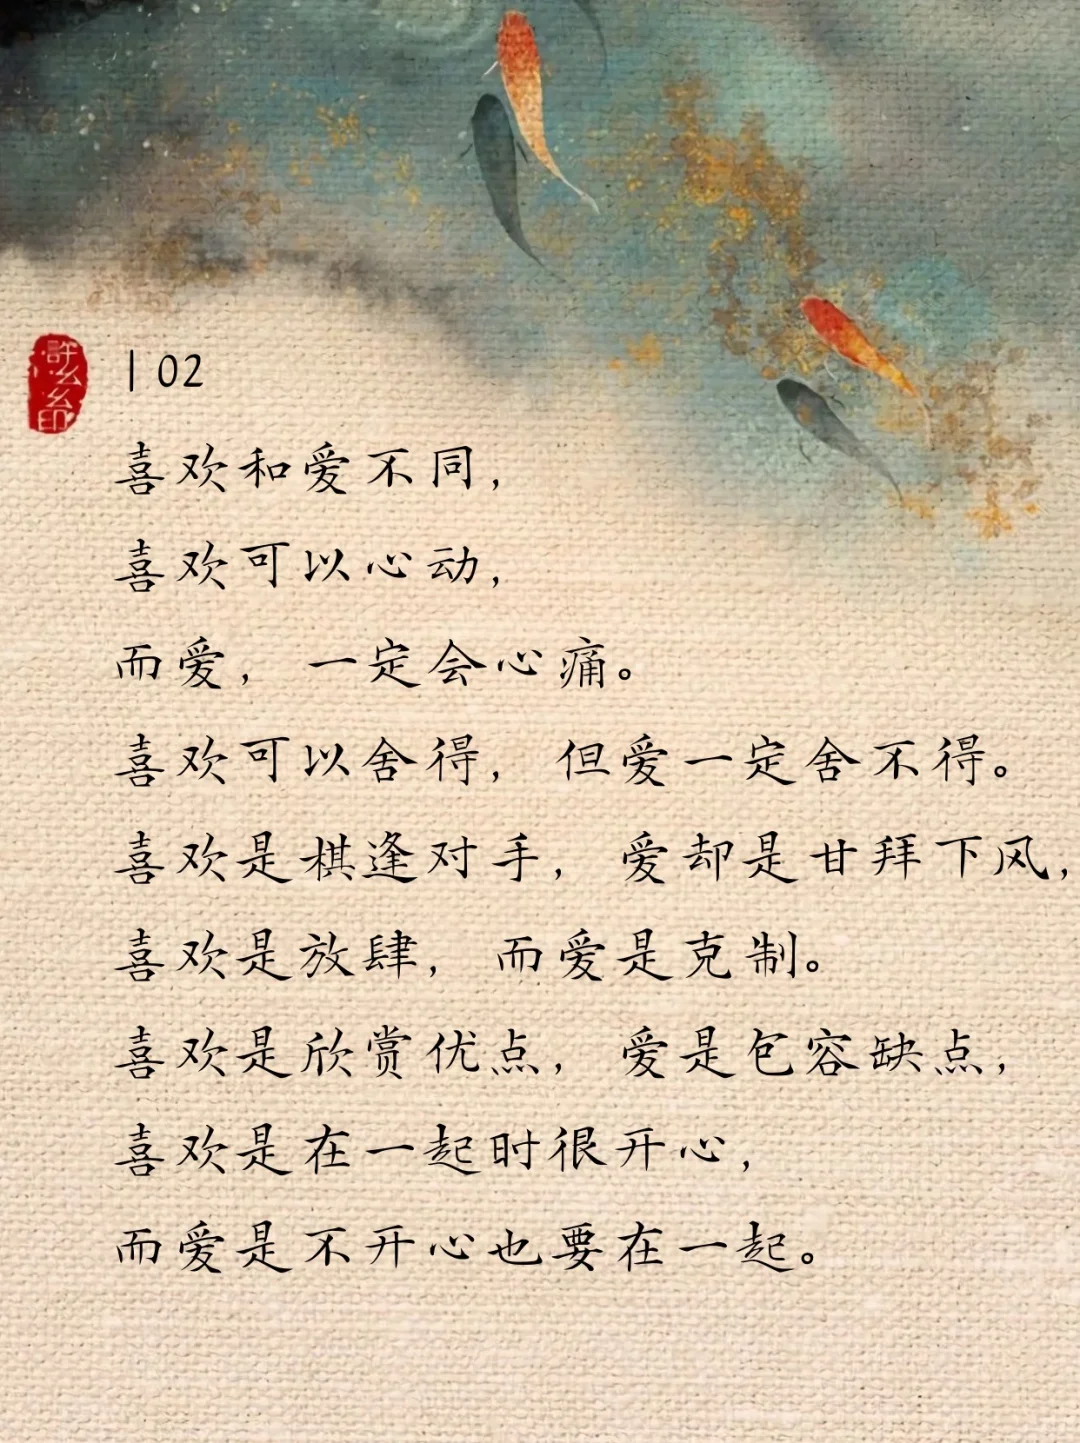 許么么印
| 02
喜欢和爱不同，
喜欢可以心动，
而爱，一定会心痛。
喜欢可以舍得，但爱一定舍不得。
喜欢是棋逢对手，爱却是甘拜下风，
喜欢是放肆，而爱是克制。
喜欢是欣赏优点，爱是包容缺点，
喜欢是在一起时很开心，
而爱是不开心也要在一起。